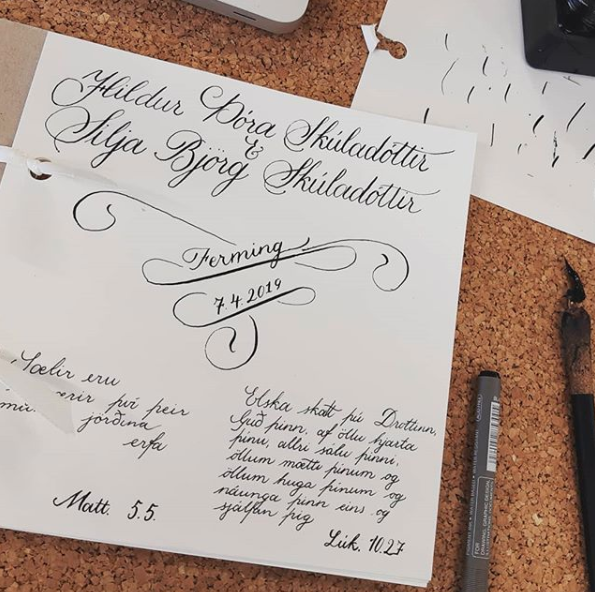 Hildur Þóra Skúladóttir
&
Silja Björg Skúladóttir
Ferming
7.4.2019
Sælir eru
því þeir
jörðina
erfa
Matt. 5.5.
Elska skalt þú Drottinn,
Guð þinn, af öllu hjarta
þínu, allri sálu þinni,
öllum mætti þínum og
öllum huga þínum og
náunga þinn eins og
sjálfan þig
Lúk. 10.27
FOR
DRAWING, GRAPHIC DESIGN